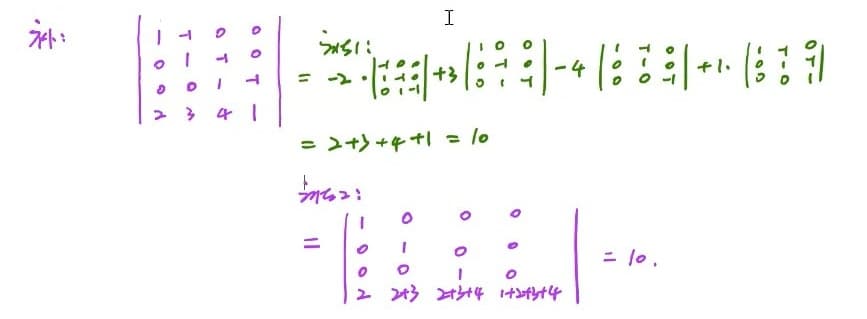 补:
| 1 -1 0 0 |
| 0 1 -1 0 |
| 0 0 1 -1 |
| 2 3 4 1 |
方法1:
= -2 · | -1 0 0 ; 1 -1 0 ; 0 1 -1 | + 3 | 1 0 0 ; 0 -1 0 ; 0 1 -1 | - 4 | 1 -1 0 ; 0 1 0 ; 0 0 -1 | + 1 · | 1 -1 0 ; 0 1 -1 ; 0 0 1 |
= 2+3+4+1 = 10
方法2:
= | 1 0 0 0 |
| 0 1 0 0 |
| 0 0 1 0 |
| 2 2+3 2+3+4 1+2+3+4 |
= 10.